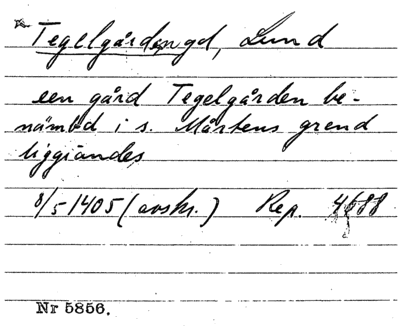 Tegelgården gd, Lund
een gård Tegelgården be-
nämbd i s. Mårtens grend
liggiandes
8/5 1405 (avskr.) Rep. 4688
Nr 5856.